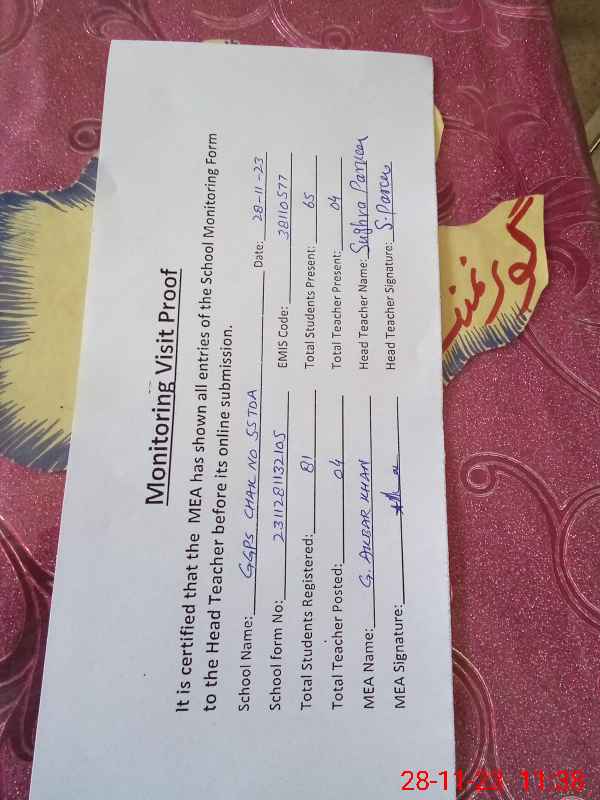 Monitoring Visit Proof
It is certified that the MEA has shown all entries of the School Monitoring Form
to the Head Teacher before its online submission.
School Name: GGPS CHAK NO 55TDA Date: 28-11-23
School form No: 2311281132105 EMIS Code: 38110577
Total Students Registered: 81 Total Students Present: 65
Total Teacher Posted: 04 Total Teacher Present: 04
MEA Name: G. AKBAR KHAN Head Teacher Name: Sughra Parveen
MEA Signature: Head Teacher Signature: S. Parveen
گورنمنٹ
28-11-23 11:38